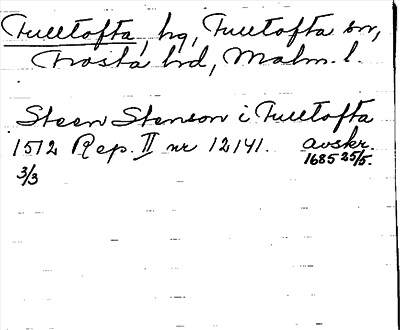 Fulltofta, hg, Fulltofta sn,
Frosta hd, Malm. l.
Steen Stenson i Fulltofta
1512 Rep. II nr 12141. avskr.
3/3 1685 25/5.